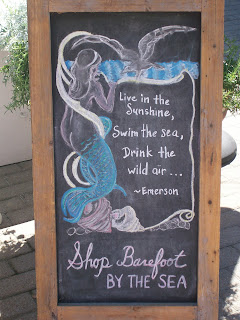 Live in the
Sunshine,
Swim the sea,
Drink the
wild air...
~Emerson
Shop Barefoot
BY THE SEA